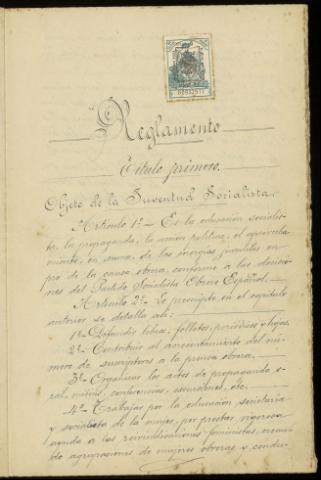 Reglamento
Título primero.
Objeto de la Juventud Socialista.
Artículo 1º — Es la educación socialis-
ta, la propaganda, la acción política, el aprovecha-
miento, en suma, de las energías juveniles en
pro de la causa obrera, conforme a las decisio-
nes del Partido Socialista Obrero Español.
Artículo 2º Lo prescrito en el capítulo
anterior se detalla así:
1º Difundir libros, folletos, periódicos y hojas.
2º Contribuir al acrecentamiento del nú-
mero de suscriptores a la prensa obrera.
3º Organizar los actos de propaganda
mítines, conferencias, excursiones, etc.
4º Trabajar por la educación societaria
y socialista de la mujer, por prestar vigorosa
ayuda a las reivindicaciones feministas, crean-
do agrupaciones de mujeres obreras y